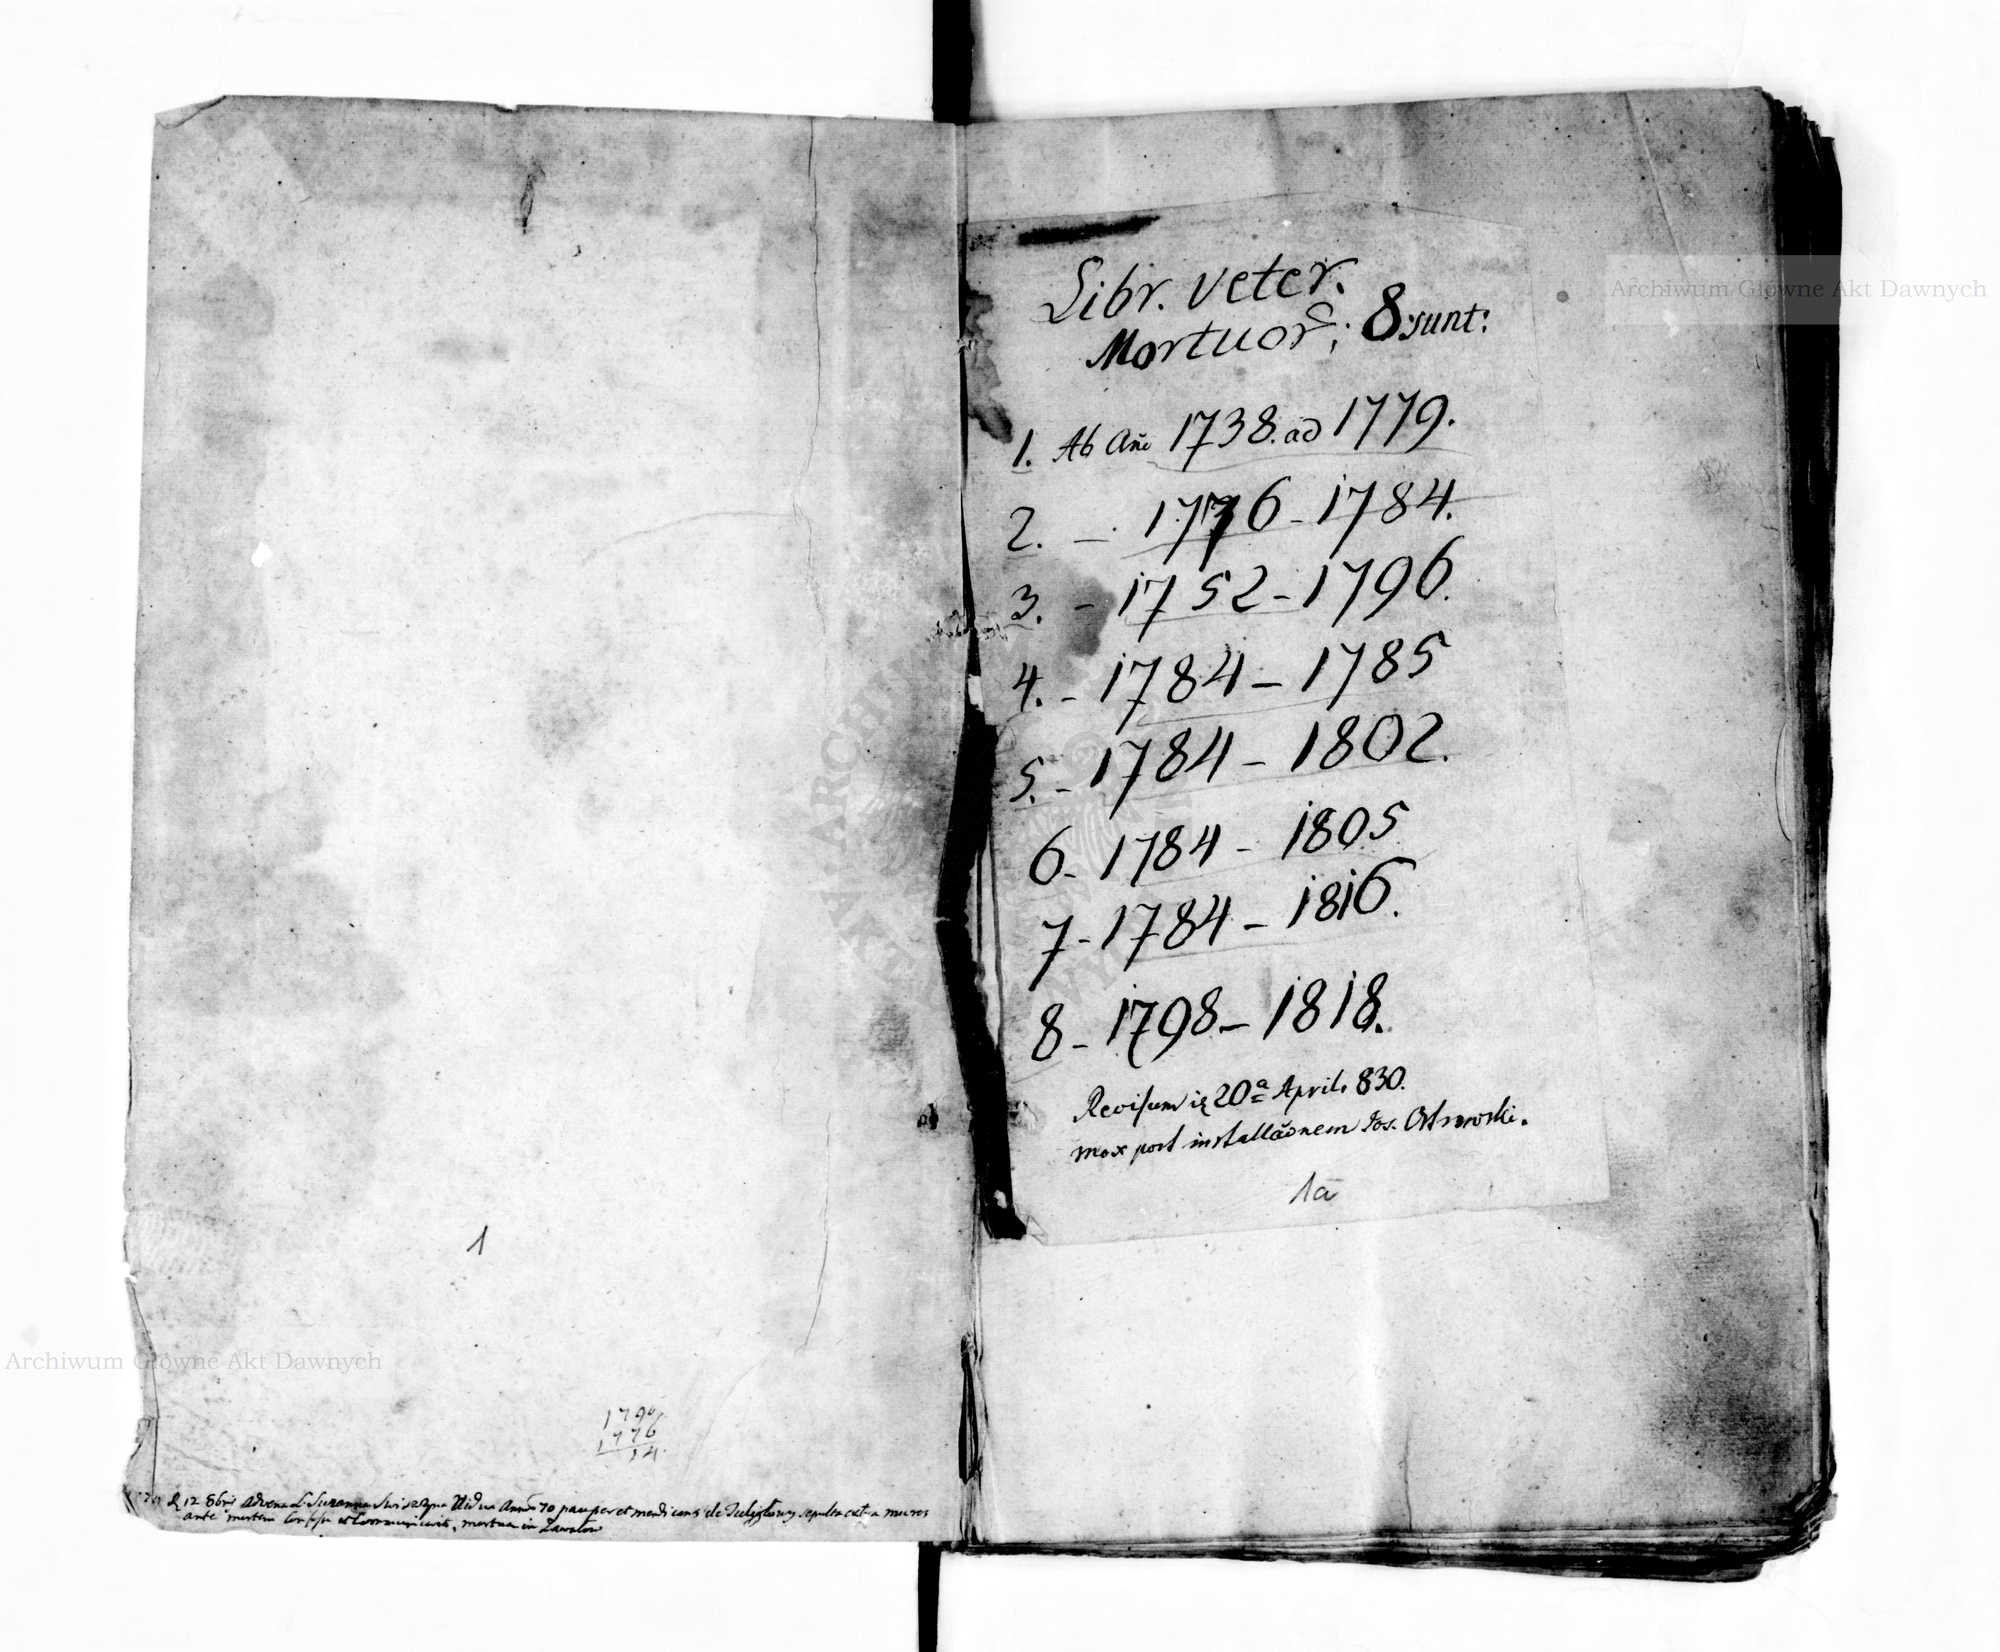 1
1796
1776
14.
12 8bris advena L. Suzanna Vidua Anno 70 pauper et mendicans de sepulta extra muros
ante mortem confessa et Communicavit, mortua in Zawalow
Libr. veter.
Mortuor̃; 8 sunt:
1. Ab Año 1738. ad 1779.
2. - 1776 - 1784.
3. - 1752 - 1796.
4. - 1784 - 1785
5. - 1784 - 1802.
6 - 1784 - 1805
7 - 1784 - 1816.
8 - 1798 - 1818.
Revisum 20ª Aprilis 830.
mox post installãonem Jos. Ostrowski.
1a
Archiwum Główne Akt Dawnych
Archiwum Główne Akt Dawnych